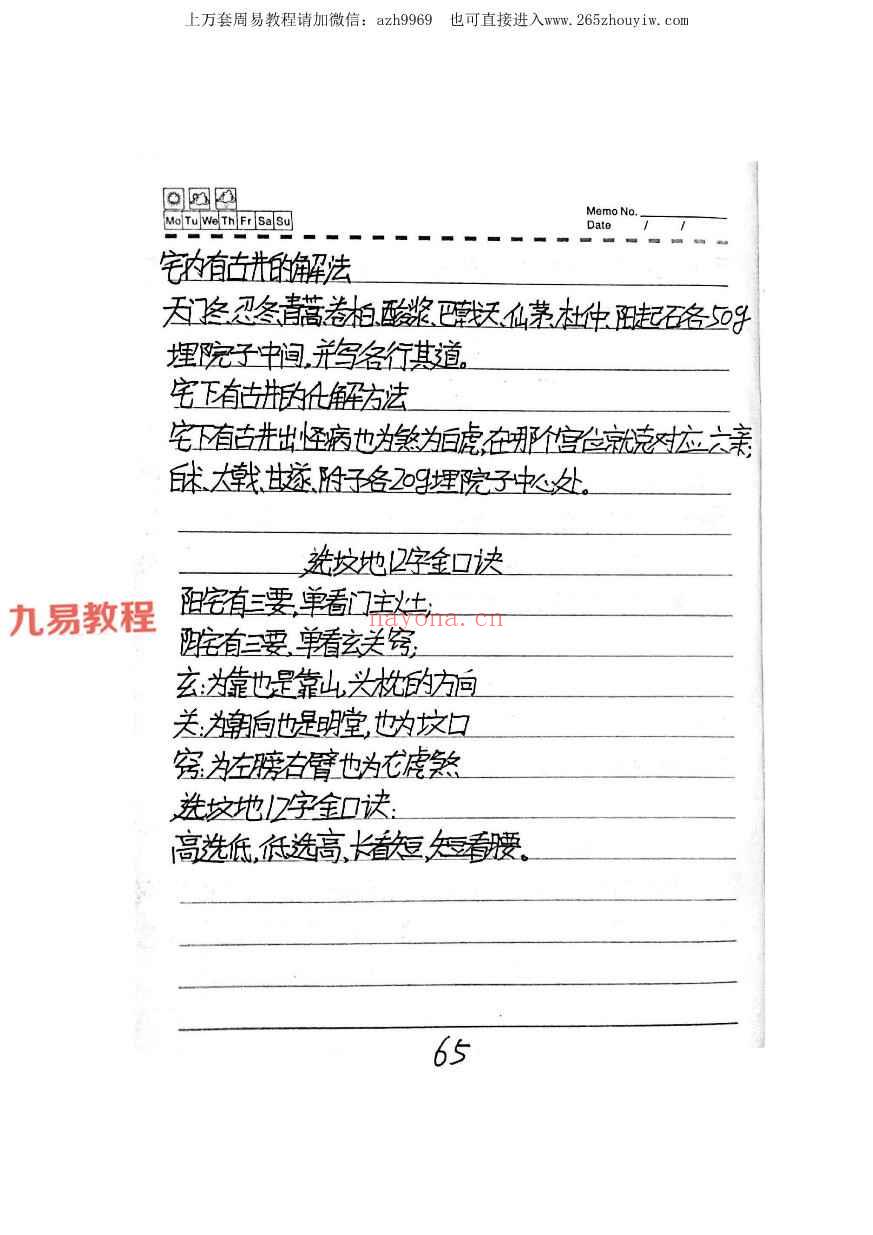 上万套周易教程请加微信：azh9969 也可直接进入www.265zhouyiw.com
Mo Tu We Th Fr Sa Su
Memo No.
Date / /
宅内有古井的解法
天门冬、忍冬、青蒿、卷柏、酸浆、巴戟天、仙茅、杜仲、阳起石各50g
埋院子中间，并写各行其道。
宅下有古井的化解方法
宅下有古井出怪病也为煞为白虎，在哪个宫位就克对应六亲；
白术、大戟、甘遂、附子各20g埋院子中心处。
选坟地12字金口诀
阳宅有三要，单看门主灶；
九易教程
nayona.cn
阴宅有三要，单看玄关窍；
玄：为靠也是靠山，头枕的方向
关：为朝向也是明堂，也为坟口
窍：为左膀右臂也为龙虎煞
选坟地12字金口诀：
高选低，低选高、长看短，短看腰。
65